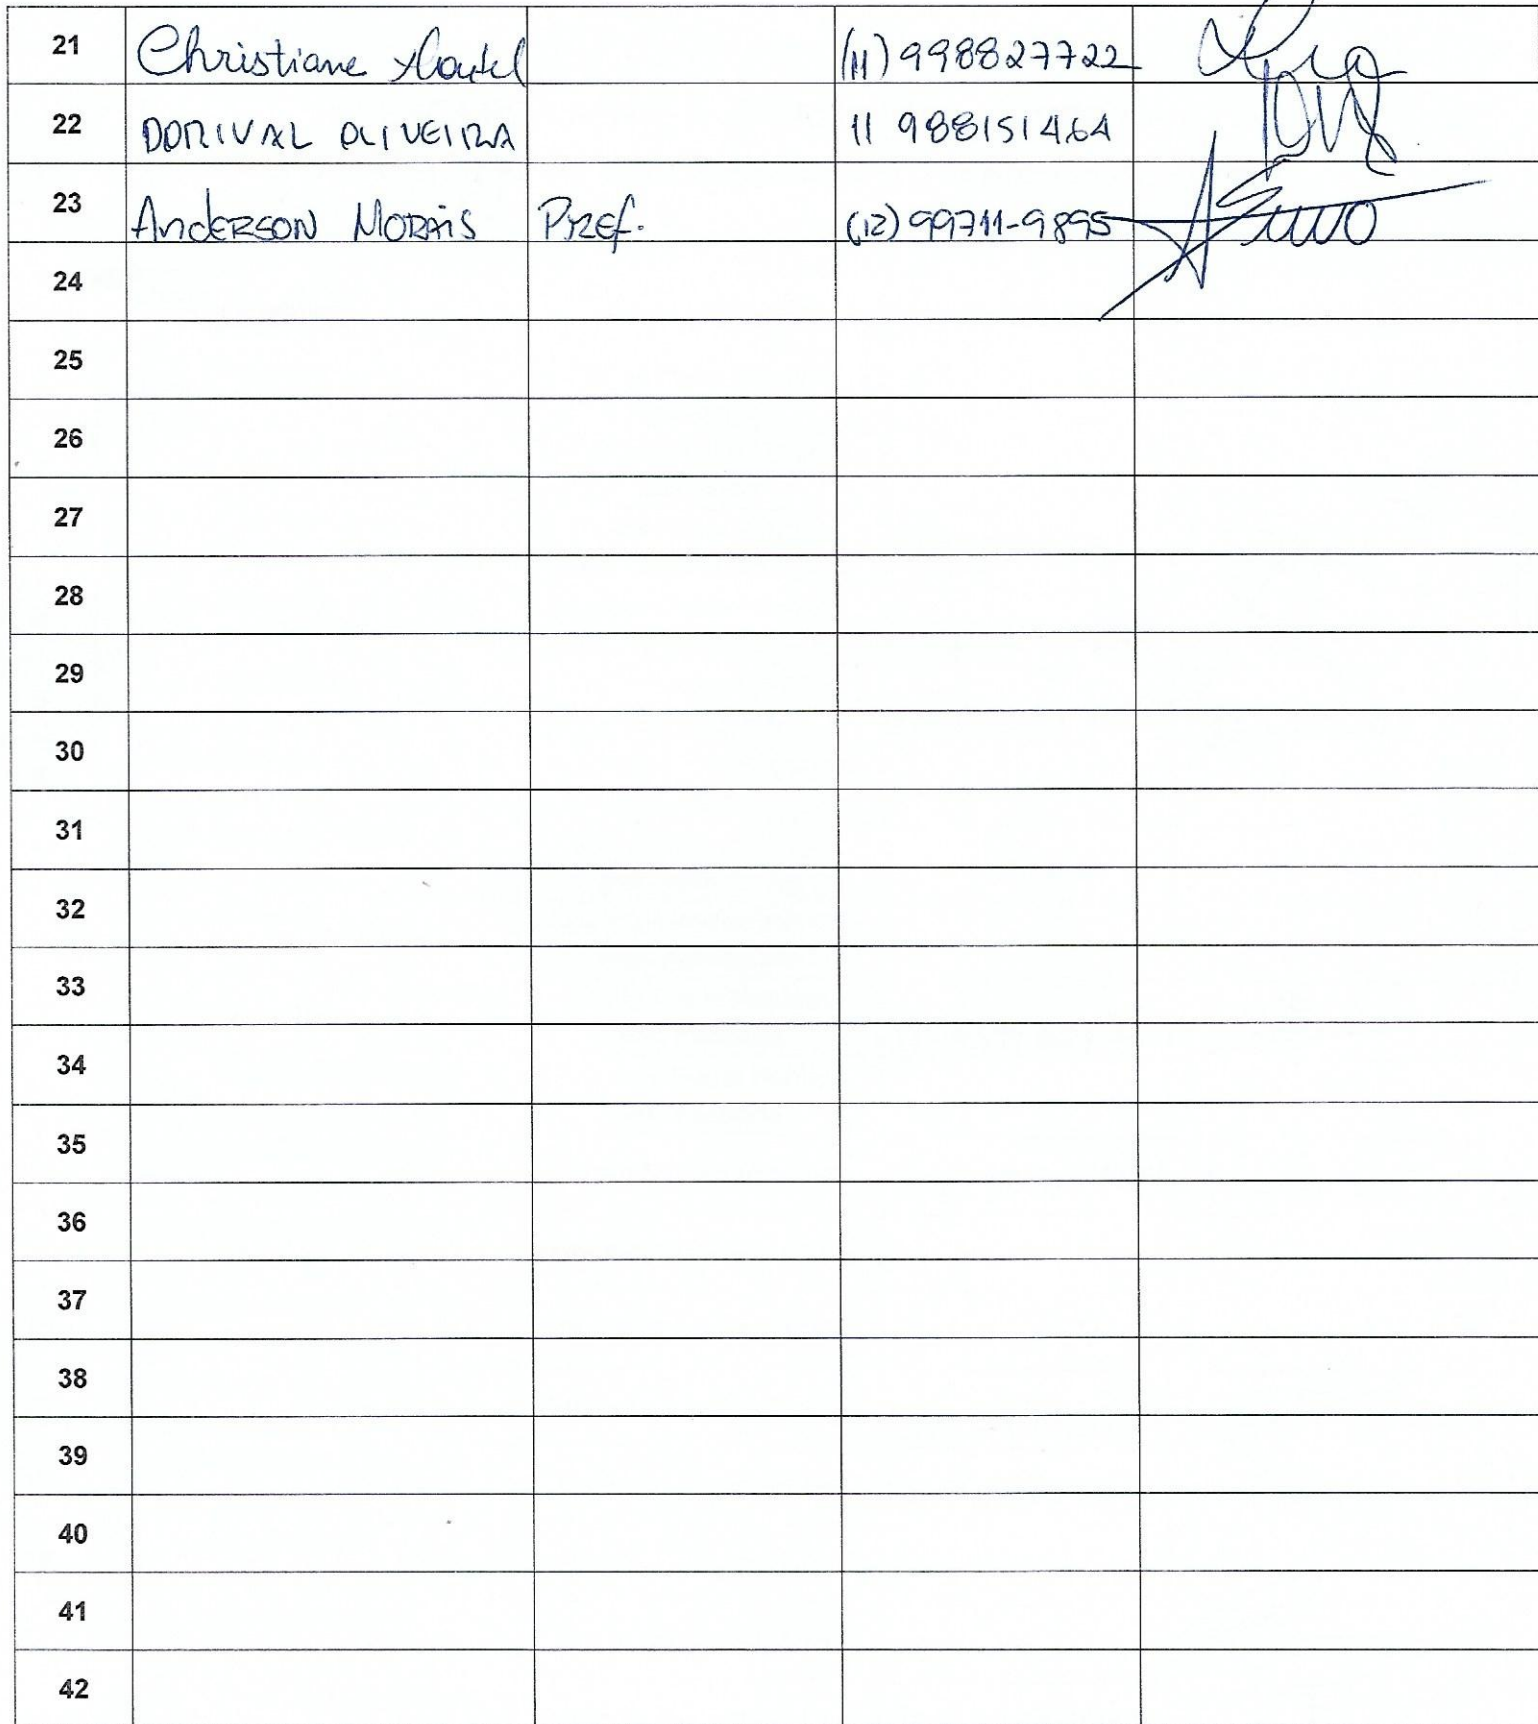 21 Christiane (11) 998827722
22 DORIVAL OLIVEIRA 11 988151464
23 Anderson Morais Pref. (12) 99711-9895
24
25
26
27
28
29
30
31
32
33
34
35
36
37
38
39
40
41
42